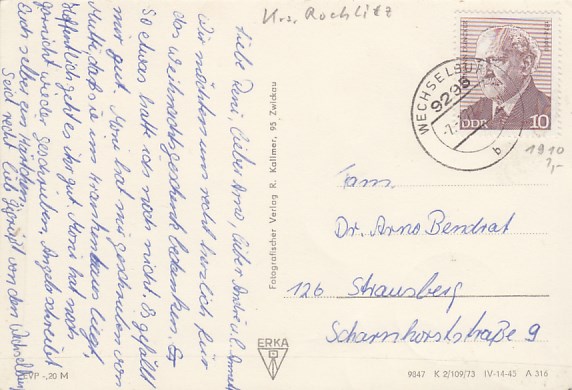 Krs. Rochlitz
Liebe Reni, Lieber Arno, Lieber André u. Annett
Wir möchten uns recht herzlich für
das Weihnachtsgeschenk bedanken.
So etwas hatte ich noch nicht. Es gefällt
mir gut. Moni hat mir geschrieben von
Mutti daß sie im Krankenhaus liegt,
hoffentlich geht es ihr gut. Moni hat noch
gar nicht wieder geschrieben, Angela schreibt
Euch selber ein Kärtchen.
Seid recht lieb gegrüßt von den Wechselburgern
EVP -,20 M
Fotografischer Verlag R. Kallmer, 95 Zwickau
ERKA
WECHSELBURG
9296
b
DDR 10
1910
Fam.
Dr. Arno Bendrat
126 Strausberg
Scharnhorststraße 9
9847 K 2/109/73 IV-14-45 A 316